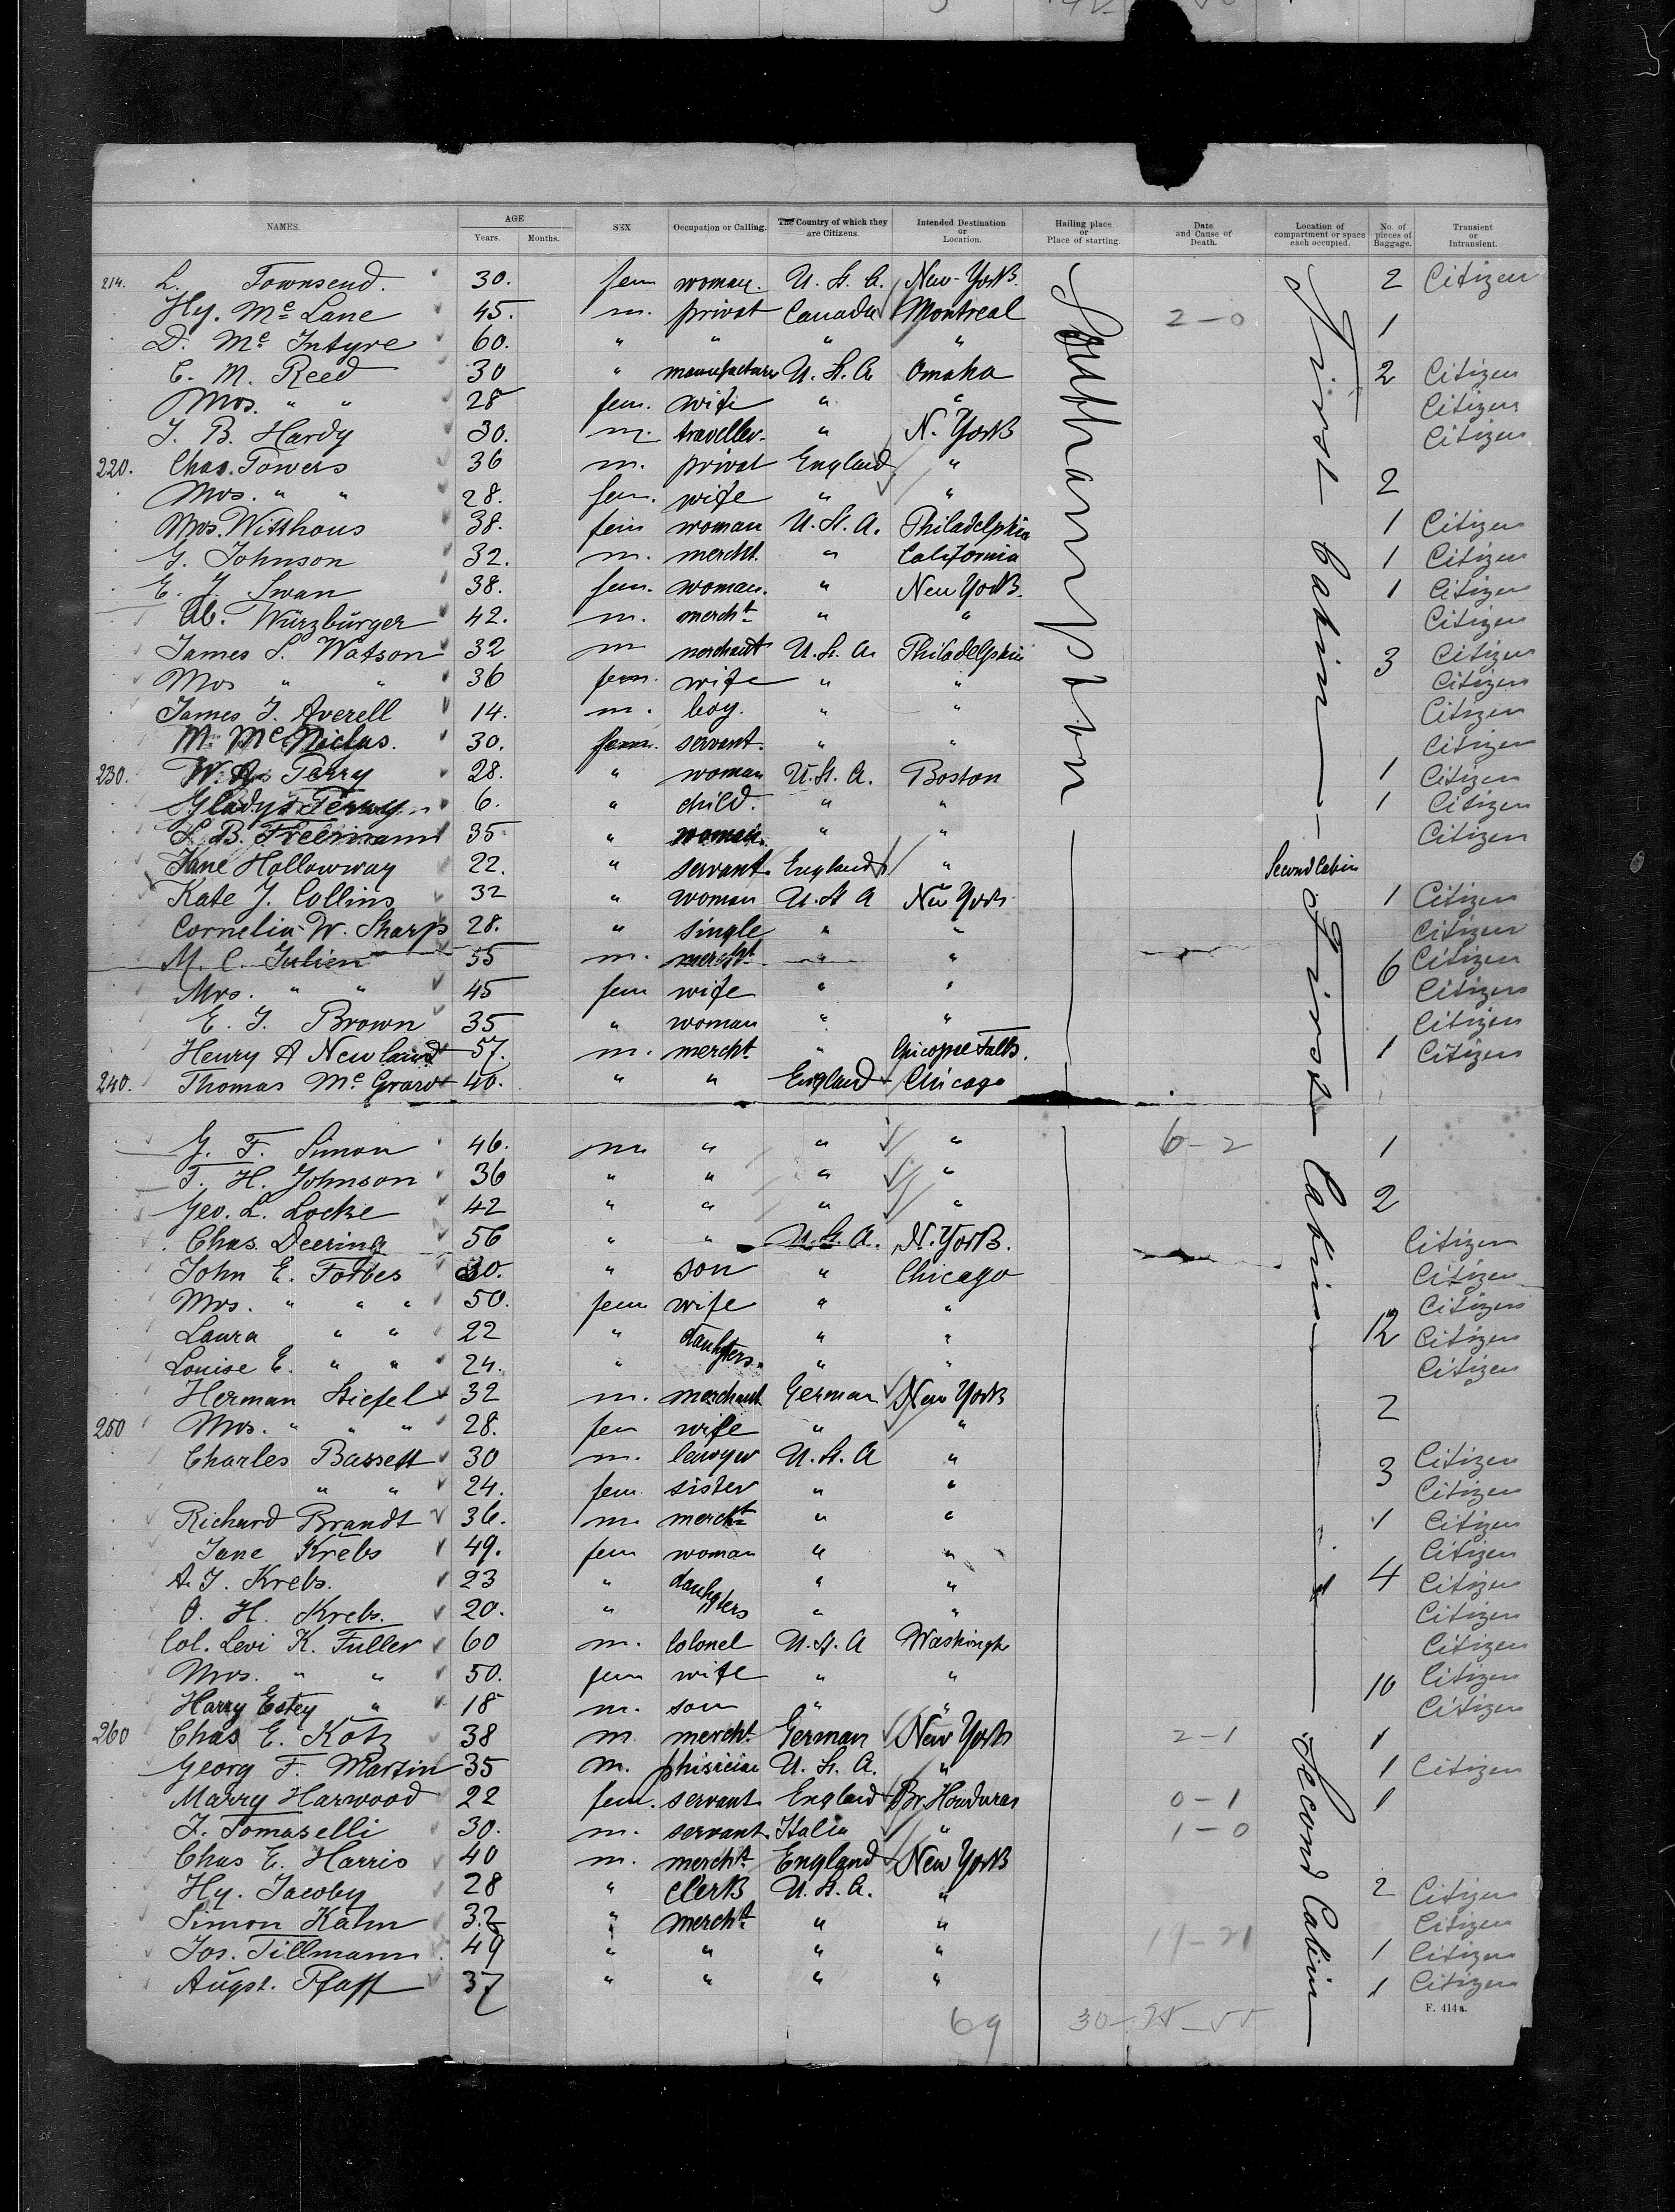 NAMES. AGE Years. Months. SEX Occupation or Calling. The Country of which they are Citizens. Intended Destination or Location. Hailing place or Place of starting. Date and Cause of Death. Location of compartment or space each occupied. No. of pieces of Baggage. Transient or Intransient.
214. L. Townsend. 30. fem woman. U. St. A. New-York. 2 Citizen
Hy. Mc Lane 45. m. privat Canada Montreal 2-0 1
D. Mc Intyre 60. " " " "
C. M. Reed 30 " manufacturer U. St. A Omaha 2 Citizen
Mrs. " " 28 fem. wife " " Citizen
J. B. Hardy 30. m. traveller " N. York Citizen
220. Chas. Towers 36 m. privat England "
Mrs. " " 28. fem. wife " " 2
Mrs. Witthaus 38. fem woman U. St. A. Philadelphia 1 Citizen
G. Johnson 32. m. mercht. " California 1 Citizen
E. J. Swan 38. fem. woman. " New York. 1 Citizen
Ab. Würzbürger 42. m. mercht " " Citizen
James S. Watson 32 m merchant U. St. A. Philadelphia 3 Citizen
Mrs " " 36 fem. wife " " Citizen
James J. Averell 14. m. boy. " " Citizen
M. Mc 30. fem. servant. " " Citizen
230. W. Perry 28. " woman U. St. A. Boston 1 Citizen
Gladys 6. " child. " " 1 Citizen
L. B. Freemann 35 " woman. " " Citizen
Jane Hollowway 22. " servant. England " Second Cabin
Kate J. Collins 32 " woman U. St A New York 1 Citizen
Cornelia W. Sharp 28. " single " " Citizen
M. C. Julien 55 m. mercht " " 6 Citizen
Mrs. " " 45 fem wife " " Citizen
E. J. Brown 35 " woman " " Citizen
Henry A Newland 57. m. mercht. " Falls. 1 Citizen
240. Thomas Mc Graw 40. " " England Chicago
G. F. Simon 46. m " " " 6-2 1
T. H. Johnson 36 " " " "
Geo. L. Locke 42 " " " " 2
Chas. Deering 56 " " U. St. A. N. York. Citizen
John E. Forbes 30. " son " Chicago Citizen
Mrs. " " " 50. fem wife " " Citizen
Laura " " 22 " daughters. " " 12 Citizen
Louise E. " " 24. " " " Citizen
Herman Stiefel 32 m. merchant German New York
250 Mrs. " " " 28. fem wife " " 2
Charles Bassett 30 m. lawyer U. St. A " Citizen
" " 24. fem. sister " " 3 Citizen
Richard Brandt 36. m. mercht " " 1 Citizen
Jane Krebs 49. fem woman " " Citizen
A. J. Krebs. 23 " daughters " " 4 Citizen
O. H. Krebs. 20. " " " Citizen
Col. Levi K. Fuller 60 m. Colonel U. St. A Washingt Citizen
Mrs. " " 50. fem wife " " 10 Citizen
Harry Estey " 18 m. son " " Citizen
260 Chas E. Kotz 38 m. mercht. German New York 2-1 1
Georg F. Martin 35 m. phisician U. St. A. " 1 Citizen
Marry Harwood 22 fem. servant England Br. Honduras 0-1 1
J. Tomaselli 30. m. servant. Italia " 1-0
Chas E. Harris 40 m. mercht. England New York
Hy. Jacoby 28 " Clerk U. St. A. " 2 Citizen
Simon Kahn 32 " mercht. " " Citizen
Jos. Tillmann 49 " " " " 19-21 1 Citizen
Augst. Pfaff 37 " " " " 1 Citizen
Southampton
First Cabin
First Cabin
Second Cabin
F. 414 a.
69 30-25-55